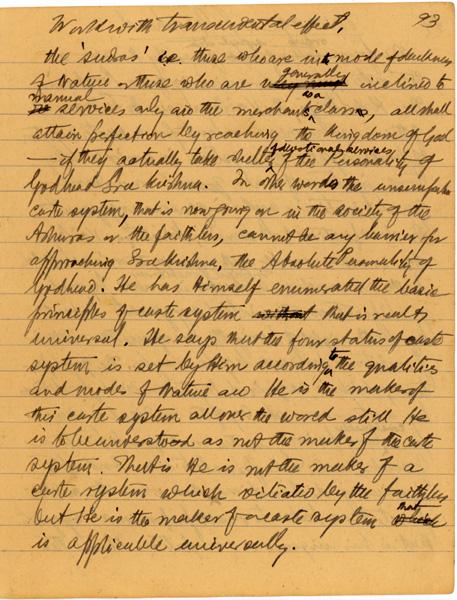 Work with transcendental effect.
93
the 'sudras' i.e. those who are in the mode of darkness
of Nature or those who are generally inclined to
manual services only and the merchant's class, all shall
attain perfection by reaching the Kingdom of God
— if they actually take shelter of devotional services of the Personality of
Godhead Sree Krishna. In other words the unscrupulous
caste system, that is now going on in the society of the
Ashuras or the faithless, cannot be any barrier for
approaching Sree Krishna, the Absolute Personality of
Godhead. He has Himself enumerated the basic
principles of caste system that is really
universal. He says that the four status of caste
system is set by Him according to the qualities
and modes of Nature and He is the maker of
this caste system all over the world still He
is to be understood as not the maker of the caste
system. That is He is not the maker of a
caste system which vitiated by the faithless
but He is the maker of a caste system that
is applicable universally.